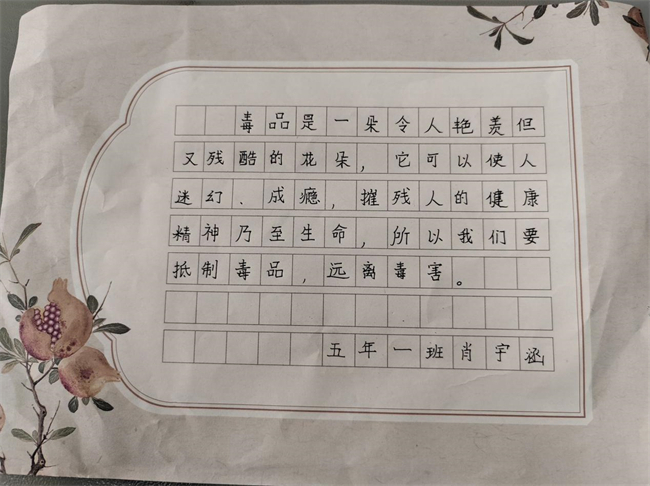 毒品是一朵令人艳羡但
又残酷的花朵，它可以使人
迷幻、成瘾，摧残人的健康
精神乃至生命，所以我们要
抵制毒品，远离毒害。
五年一班肖宇涵